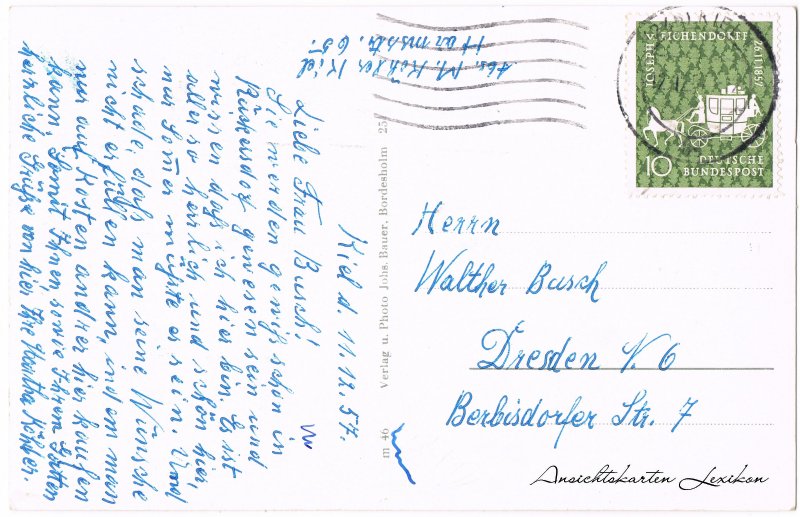 Abs. M. Köhler Kiel
Harmsstr. 65.
Kiel d. 11.12.57.
Liebe Frau Busch!
Sie werden gewiß schon in
gewesen sein und
wissen daß ich hier bin. Es ist
alles so herrlich und schön hier,
nur Sonne müßte es sein. Und
schade, daß man seine Wünsche
nicht erfüllen kann, indem man
nur auf Kosten andrer hier kaufen
kann. Somit Ihnen, sowie Ihrem Gatten
herzliche Grüße von hier Ihre Köhler.
m 46 Verlag u. Photo Johs. Bauer, Bordesholm 25
JOSEPH v. EICHENDORFF
26.11.1857
10 DEUTSCHE BUNDESPOST
Herrn
Walther Busch
Dresden N. 6
Berbisdorfer Str. 7
Ansichtskarten Lexikon